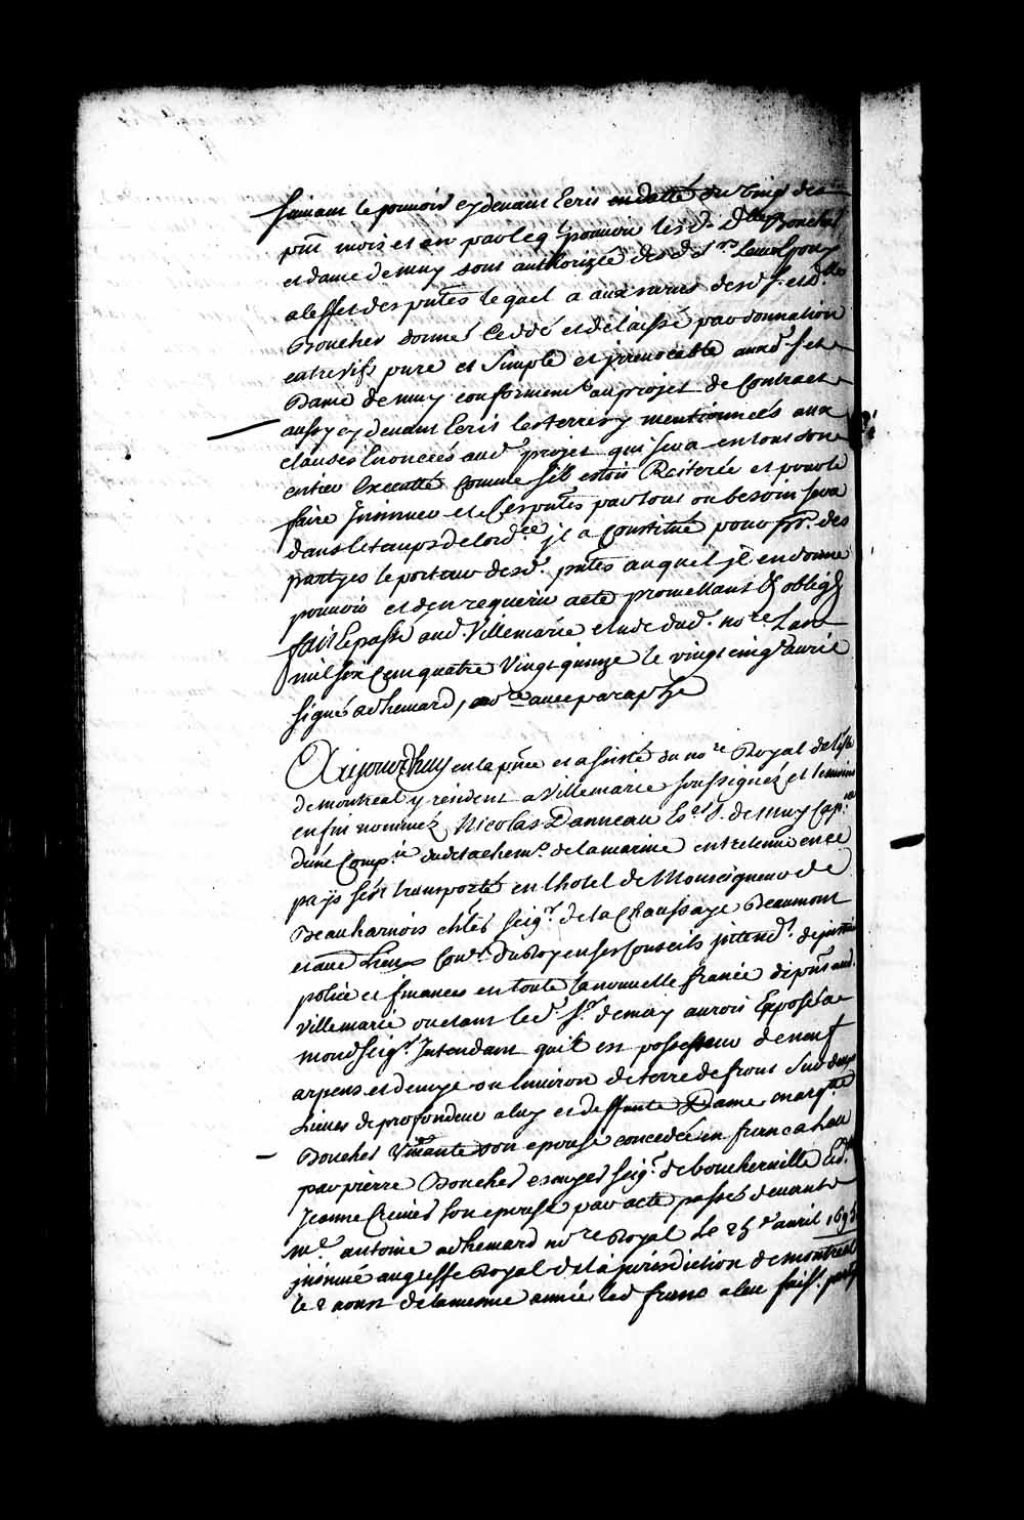 suivant le pouvoir cydevant Ecris en datte du vingt des
pnt mois et an par leql pouvoir lesd. Dlle Boucher
et dame demuy sont authorizée desd. Srs Leurs Epoux
a leffet des pntes lequel a aux noms desd. S. et dlles
Boucher donné Ceddé et delaissé par donnation
entre vifs pure et simple et irrevocable aud. S. et
Dame demuy conformemt au projet de Contract
aussy cydevant Ecris les terres y mentionnées aux
clauses Enoncées aud. projet qui sera en tout son
entier Executté Comme s'il estois Reiterée et pour le
faire Insinuer et Ces pntes par tous ou besoin sera
dans le temps de lordce il a Constitué pour pr. des
partyes le porteur desd. pntes auquel il en donne
pouvoir et den requerir acte promettant & obligt &
fait Et passé aud. Villemarie etude dud. nore Lan
mil six Cens quatre Vingt quinze le vingt cinqe avril
signé adhemard, nore avec paraphe
Aujourdhuy en la pnce et assisté du nore Royal de lisle
de montreal y residens a Villemarie soussignez et temoins
en fin nommez Nicolas Danneau Esr S. de muy Capne
dune Compie du detachemt de la marine entretenue en ce
pays sest transporté en lhotel de Monseigneur de
Beauharnois chler seigr de la Chaussaye Beaumont
et autres Lieux Conr du Roy en ses Conseils intendt de justice
police et finances en toute la nouvelle france de pnt aud.
Villemarie ou estant led. Sr demuy aurois Exposé a
mond. seigr Intendant quil est possesseur de neuf
arpens et demye ou Environ de terre de frons sur deux
Lieues de profondeur a luy et deffunte Dame margte
Boucher Vivante son epouse concedée en franc aleu
par pierre Boucher escuyer seigr de boucherville Et d.
Jeanne Crevier son epouse par acte passé devant
me antoine adhemard nore Royal Le 25e avril 1695
insinué au greffe Royal de la jurisdiction de montreal
le 2 aoust de la mesme année led franc aleu fais. partye